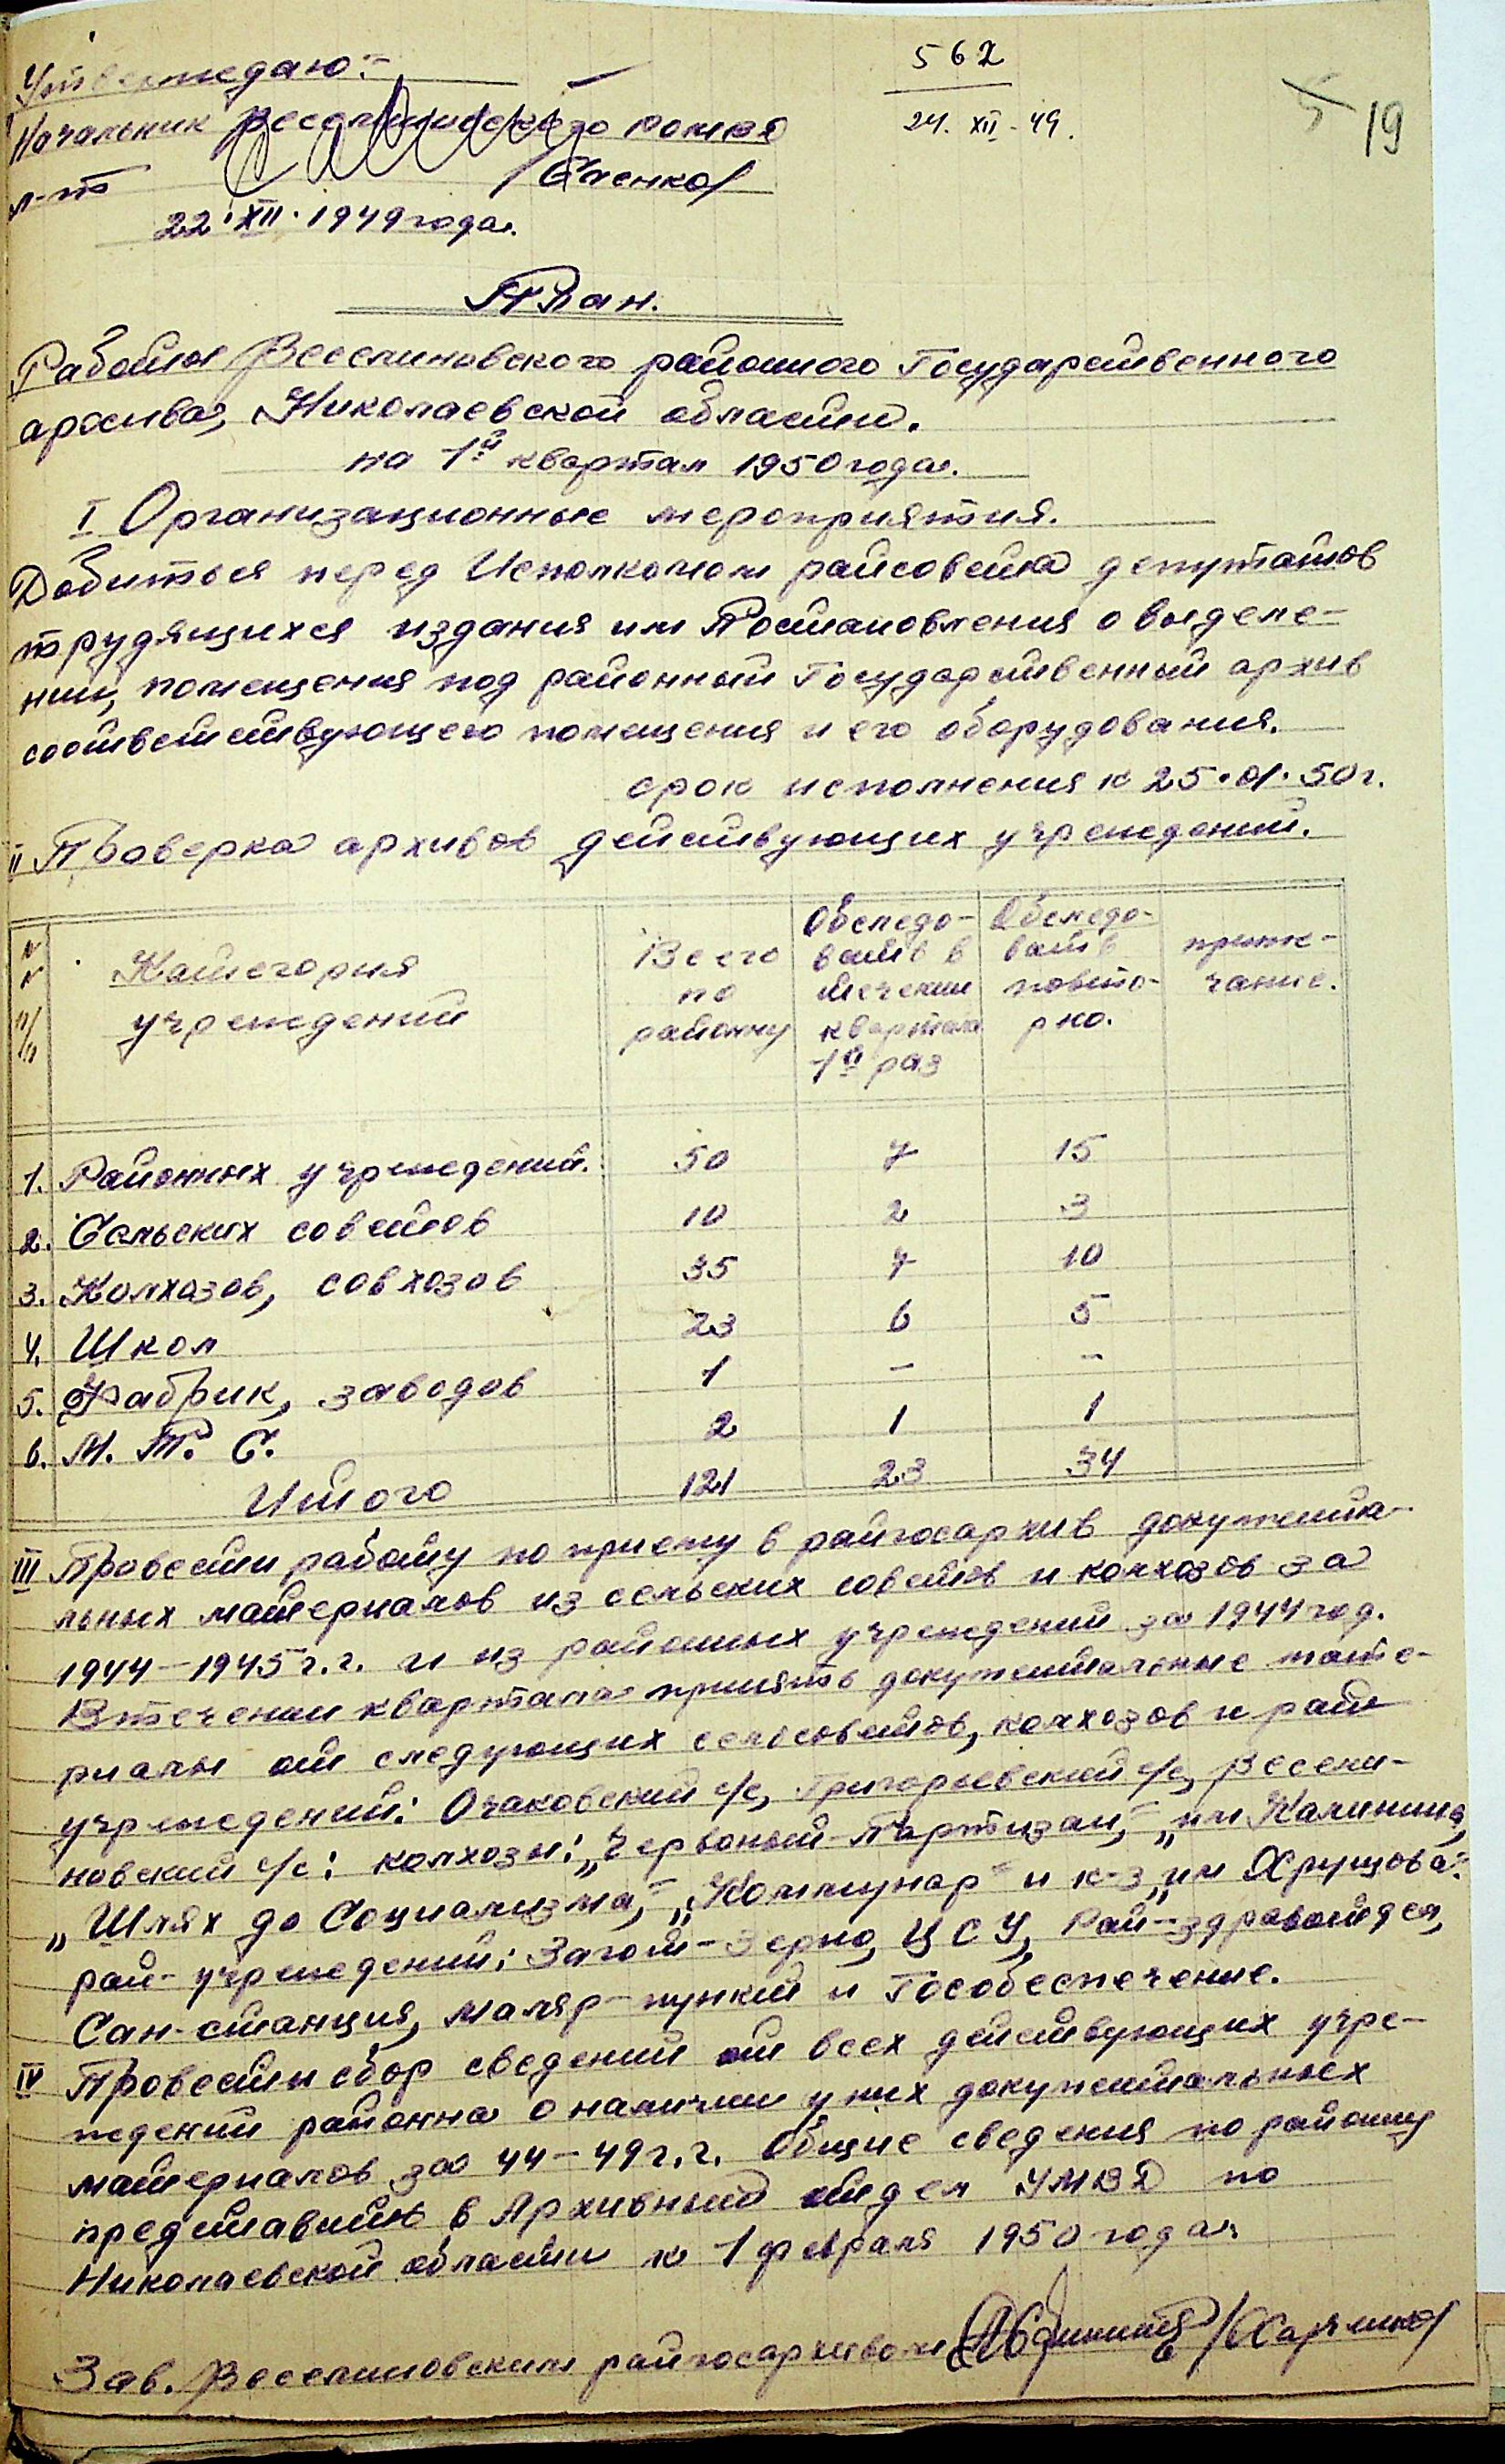 Утверждаю:-
562
24. XII - 49.
5 19
Начальник Веселиновского РОМВД
л-т /Єленко/
22.XII.1949 года.
План.
Работы Веселиновского районного Государственного
архива, Николаевской области.
на 1й квартал 1950 года.
I Организационные мероприятия.
Добиться перед Исполкомом райсовета депутатов
трудящихся издания им Постановления о выделе-
нии, помещения под районный Государственный архив
соответствующего помещения и его оборудования.
срок исполнения к 25.01.50г.
II Проверка архивов действующих учреждений.
№№ п/п | Категория учреждений | Всего по районну | Обследовать в течении квартала 1й раз | Обследовать повторно. | примечание.
1. Районных учреждений. 50 7 15
2. Сельских советов 10 2 3
3. Колхозов, совхозов 35 7 10
4. Школ 23 6 5
5. Фабрик, заводов 1 - -
6. М. Т. С. 2 1 1
Итого 121 23 34
III Провести работу по приему в райгосархив документа-
льных материалов из сельских советов и колхозов за
1944-1945 г.г. и из районных учреждений за 1944 год.
В течении квартала принять документальные мате-
риалы от следующих сельсоветов, колхозов и рай
учреждений: Очаковский с/с, Григорьевский с/с, Весели-
новский с/с: колхозы: „Червоный-Партизан," „им Калинина,
„Шлях до Социализма," „Коммунар" и к-з „им Хрущова".
рай-учреждений: Загот-Зерно, ЦСУ, Рай-здравотдел,
Сан-станция, маляр-пункт и Гособеспечение.
IV Провести сбор сведений от всех действующих учре-
ждений районна о наличии у них документальных
материалов за 44-49 г.г. Общие сведения по районну
представить в Архивный отдел УМВД по
Николаевской области к 1 февраля 1950 года.
Зав. Веселиновским райгосархивом